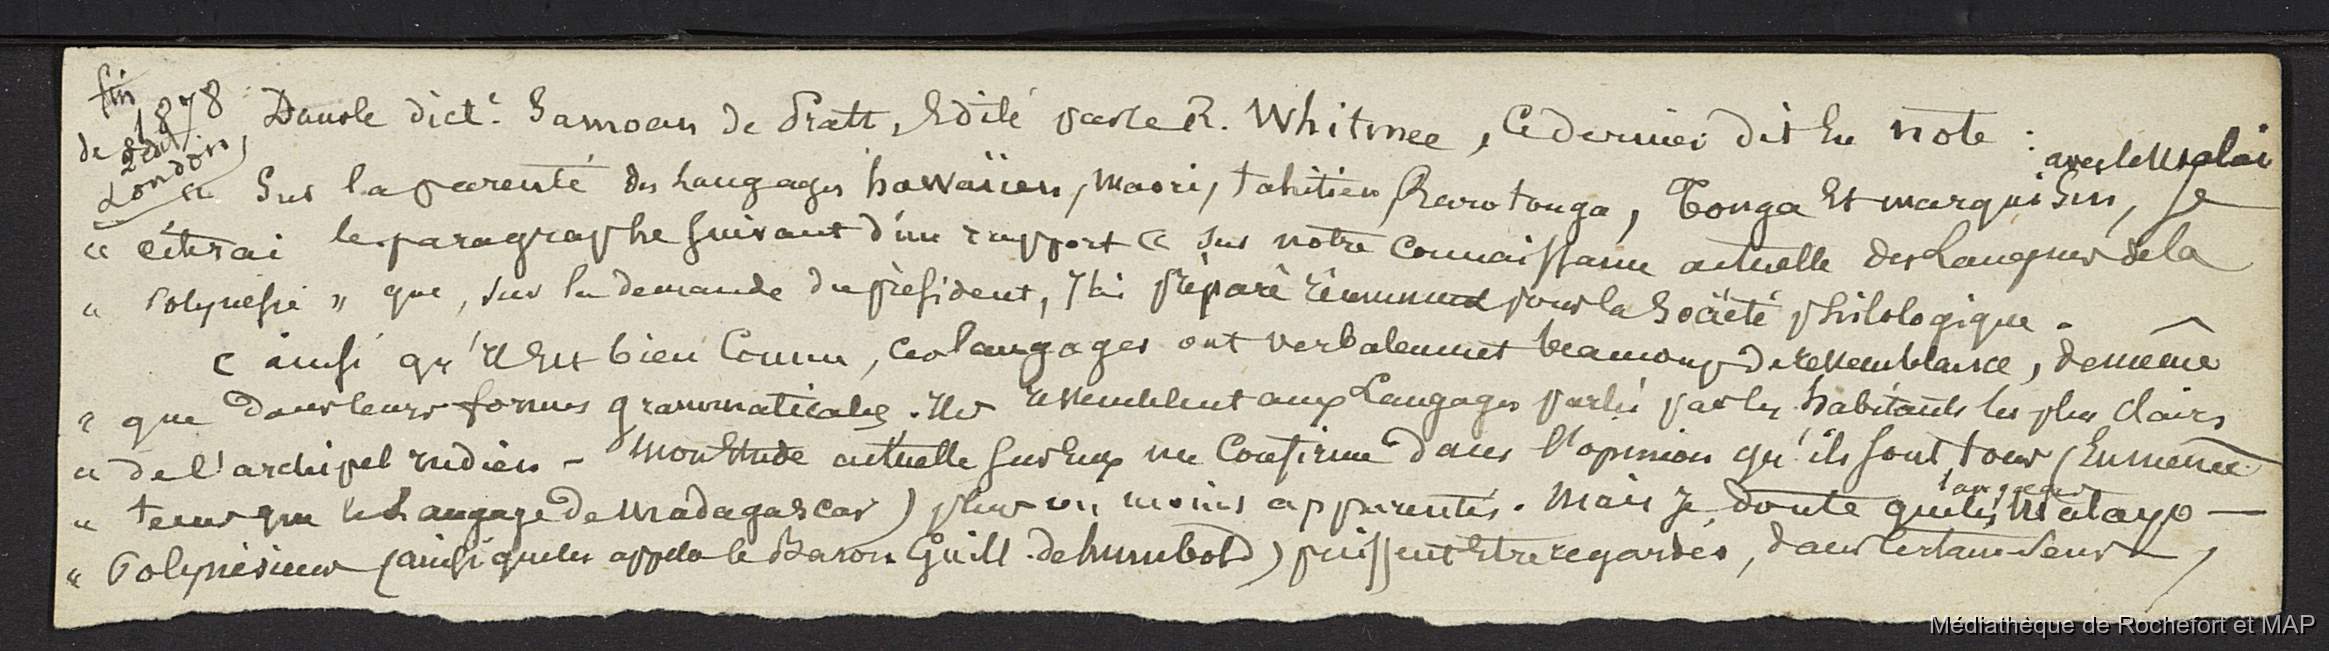 fin
de 1878
2e edit
London,
Dans le dict.e Samoan de Pratt, Edité par le R. Whitmee, ce dernier dit en note :
avec le Malai
« Sur la parenté des Langages hawaiien, Maori, tahitien, Rarotonga, Tonga et marquisien, je
« citerai le paragraphe suivant d'un rapport « sur notre connaissance actuelle des Langues de la
« Polynésie » que, sur la demande du président, j'ai préparé récemment pour la Société philologique.
« ainsi qu'il est bien connu, ces langages ont verbalement beaucoup de ressemblance, de même
« que dans leurs formes grammaticales. Ils ressemblent aux Langages parlés par les habitants les plus clairs
« de l'archipel indien - Mon Etude actuelle sur eux me confirme dans l'opinion qu'ils sont tous (en même
langues
« tems que le Langage de Madagascar) plus ou moins apparentés. Mais je doute que les Malayo-
« Polynésiens (ainsi que les appela le Baron Guill. de humbold) puissent être regardés, dans certain sens,
Médiathèque de Rochefort et MAP